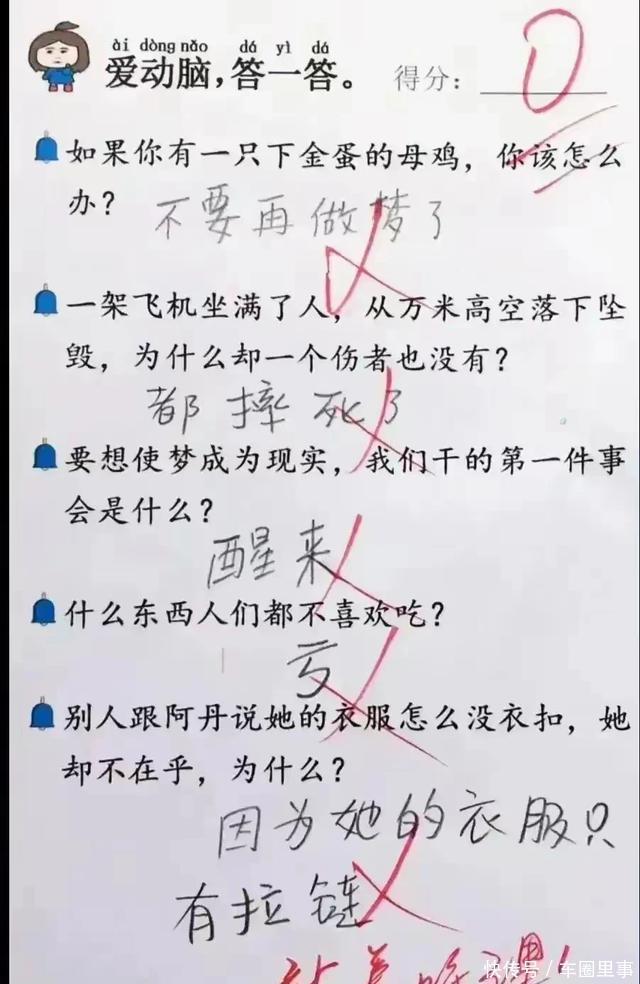 ài dòng nǎo dá yì dá
爱动脑，答一答。 得分： 0
如果你有一只下金蛋的母鸡，你该怎么
办？ 不要再做梦了
一架飞机坐满了人，从万米高空落下坠
毁，为什么却一个伤者也没有？
都摔死了
要想使梦成为现实，我们干的第一件事
会是什么？
醒来
什么东西人们都不喜欢吃？
亏
别人跟阿丹说她的衣服怎么没衣扣，她
却不在乎，为什么？
因为她的衣服只
有拉链
快传号／车圈里事